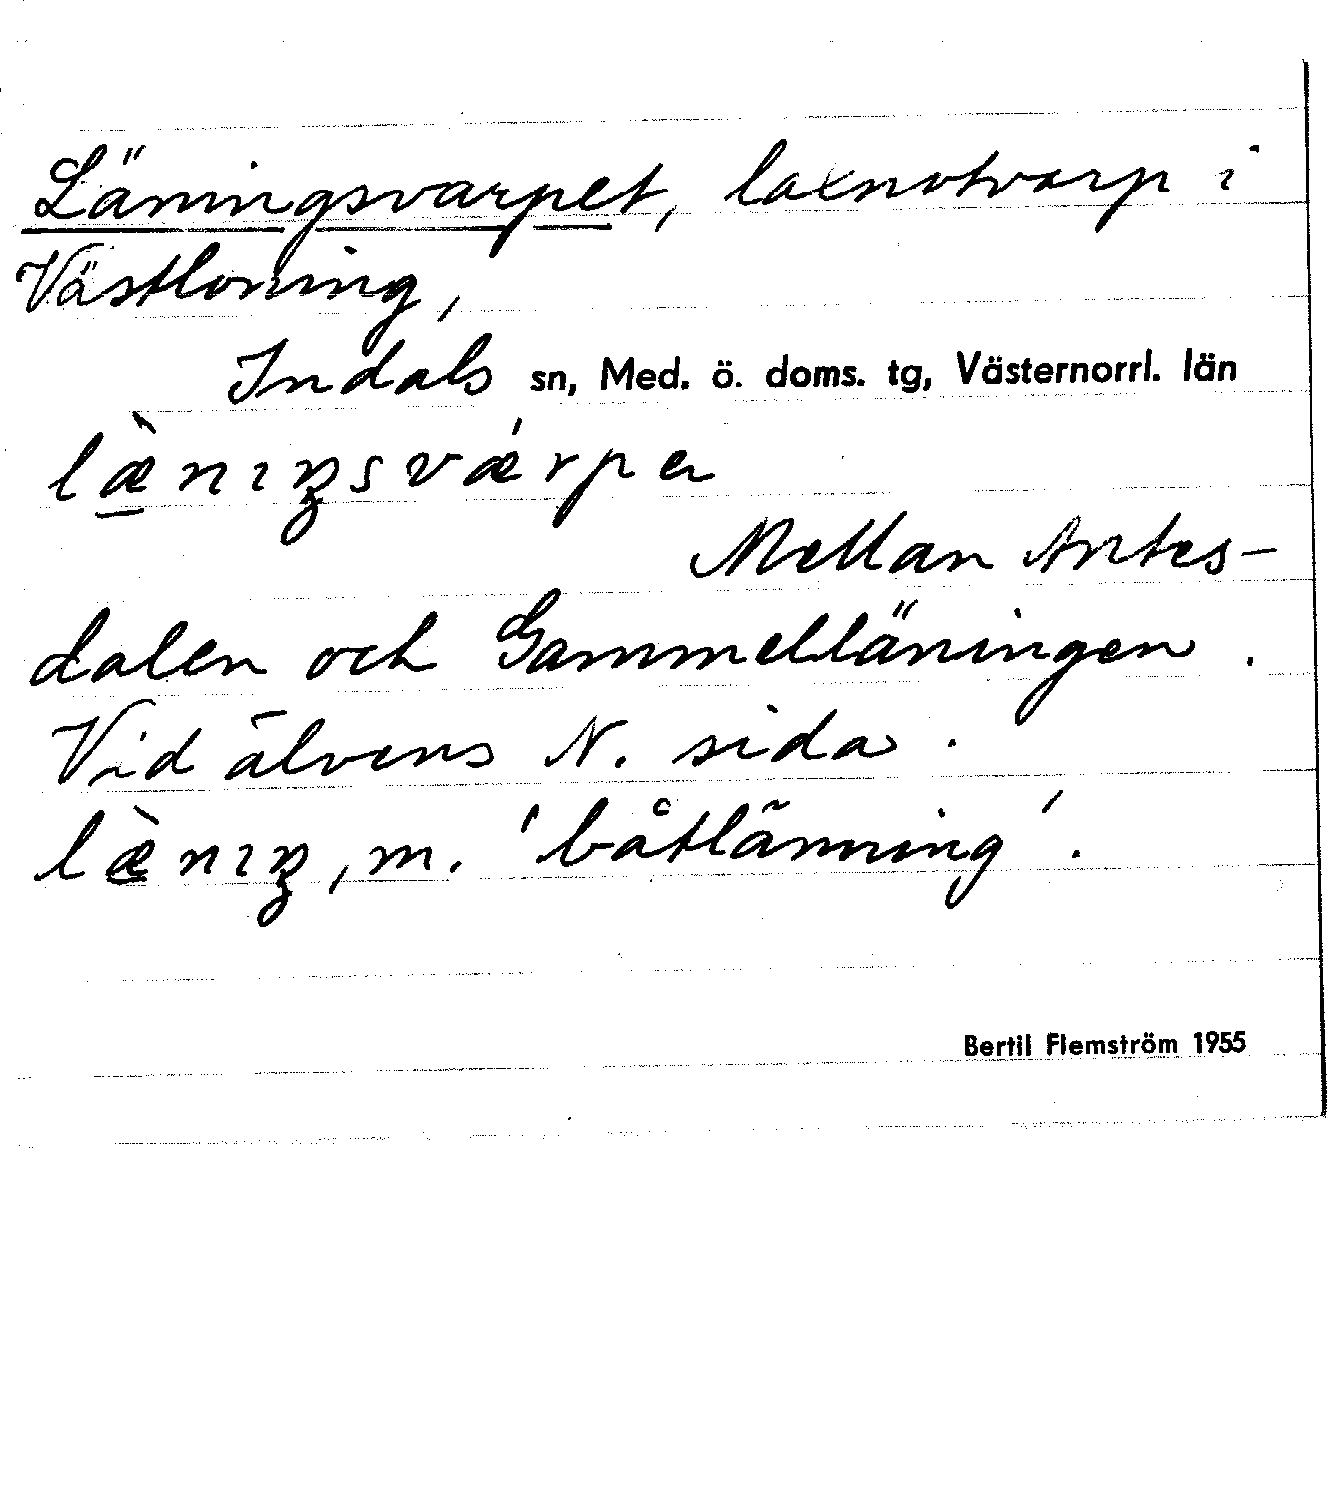 Läningsvarpet, laxnotvarp i
Västloning,
Indals sn, Med. ö. doms. tg, Västernorrl. län
læ̀nıŋsværpe
Mellan Antes-
dalen och Gammelläningen.
Vid älvens N. sida.
læ̀nıŋ, m. 'båtlänning'.
Bertil Flemström 1955